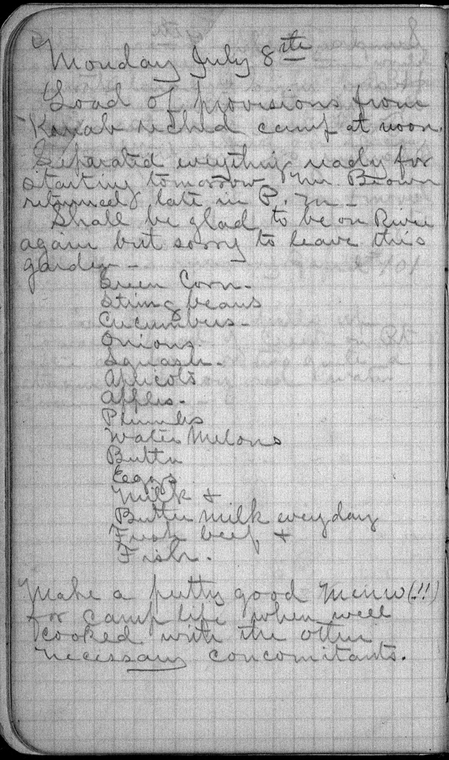 Monday July 8th
Load of provisions from
Kanab reched camp at noon.
Seperated everything ready for
starting tomorrow Mr. Brown
returned late in P.M -
Shall be glad to be on River
again but sorry to leave this
garden -
Green Corn -
String beans
Cucumbers -
Onions
Squash -
Apricots
Apples -
Plumbs
Water Melons
Butter
Eggs
Milk &
Butter Milk everyday
Fresh beef &
Fish.
Make a pretty good Menu (!!)
for camp life when well
cooked with the other
necessary concomitants.